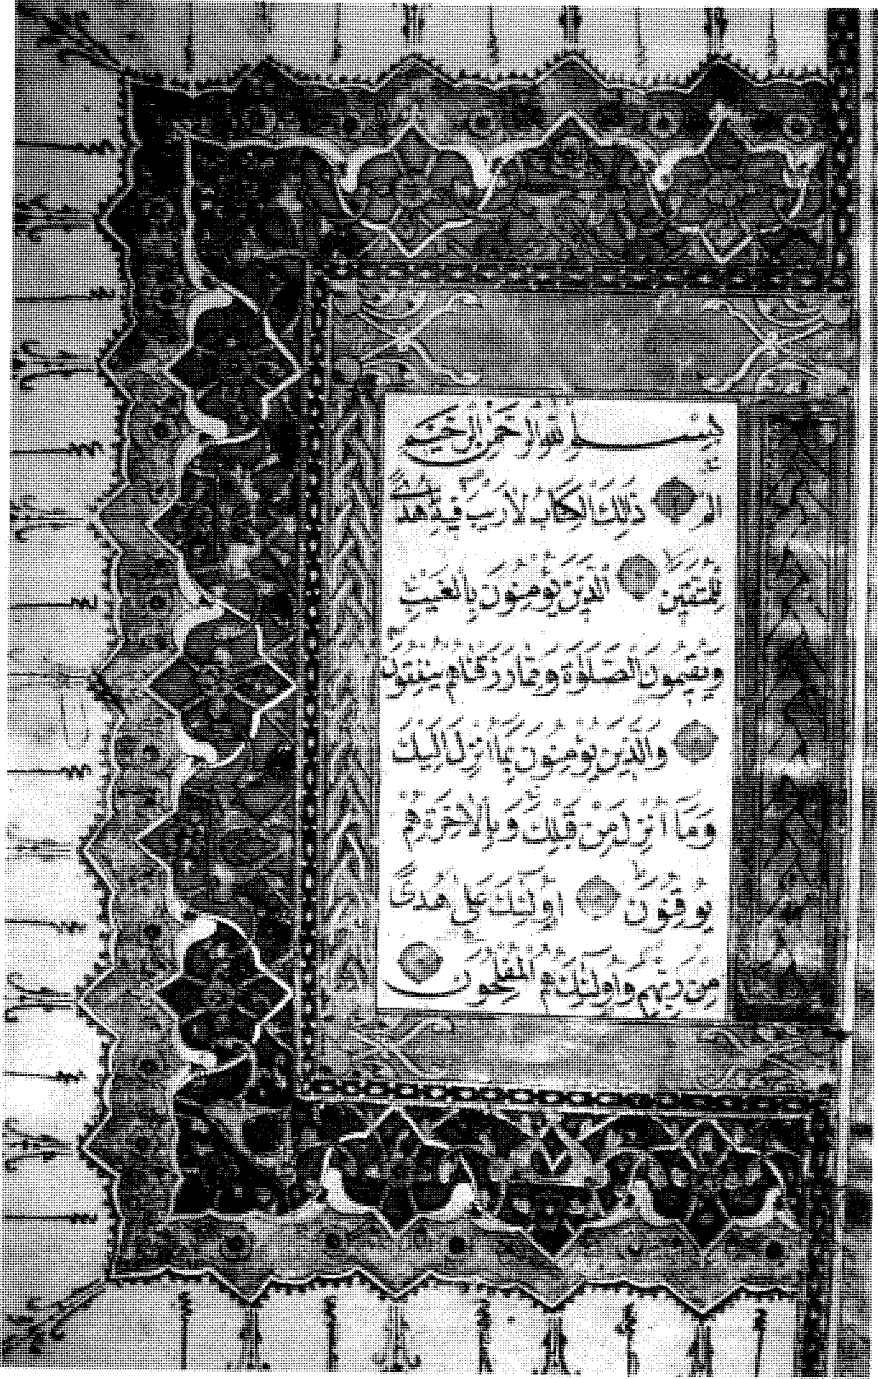 بِسْمِ اللهِ الرَّحْمٰنِ الرَّحِيمِ
الم ذٰلِكَ الْكِتَابُ لَا رَيْبَ فِيهِ هُدًى
لِلْمُتَّقِينَ الَّذِينَ يُؤْمِنُونَ بِالْغَيْبِ
وَيُقِيمُونَ الصَّلٰوةَ وَمِمَّا رَزَقْنَاهُمْ يُنْفِقُونَ
وَالَّذِينَ يُؤْمِنُونَ بِمَا اُنْزِلَ اِلَيْكَ
وَمَا اُنْزِلَ مِنْ قَبْلِكَ وَبِالْاٰخِرَةِ هُمْ
يُوقِنُونَ اُولٰئِكَ عَلٰى هُدًى
مِنْ رَبِّهِمْ وَاُولٰئِكَ هُمُ الْمُفْلِحُونَ